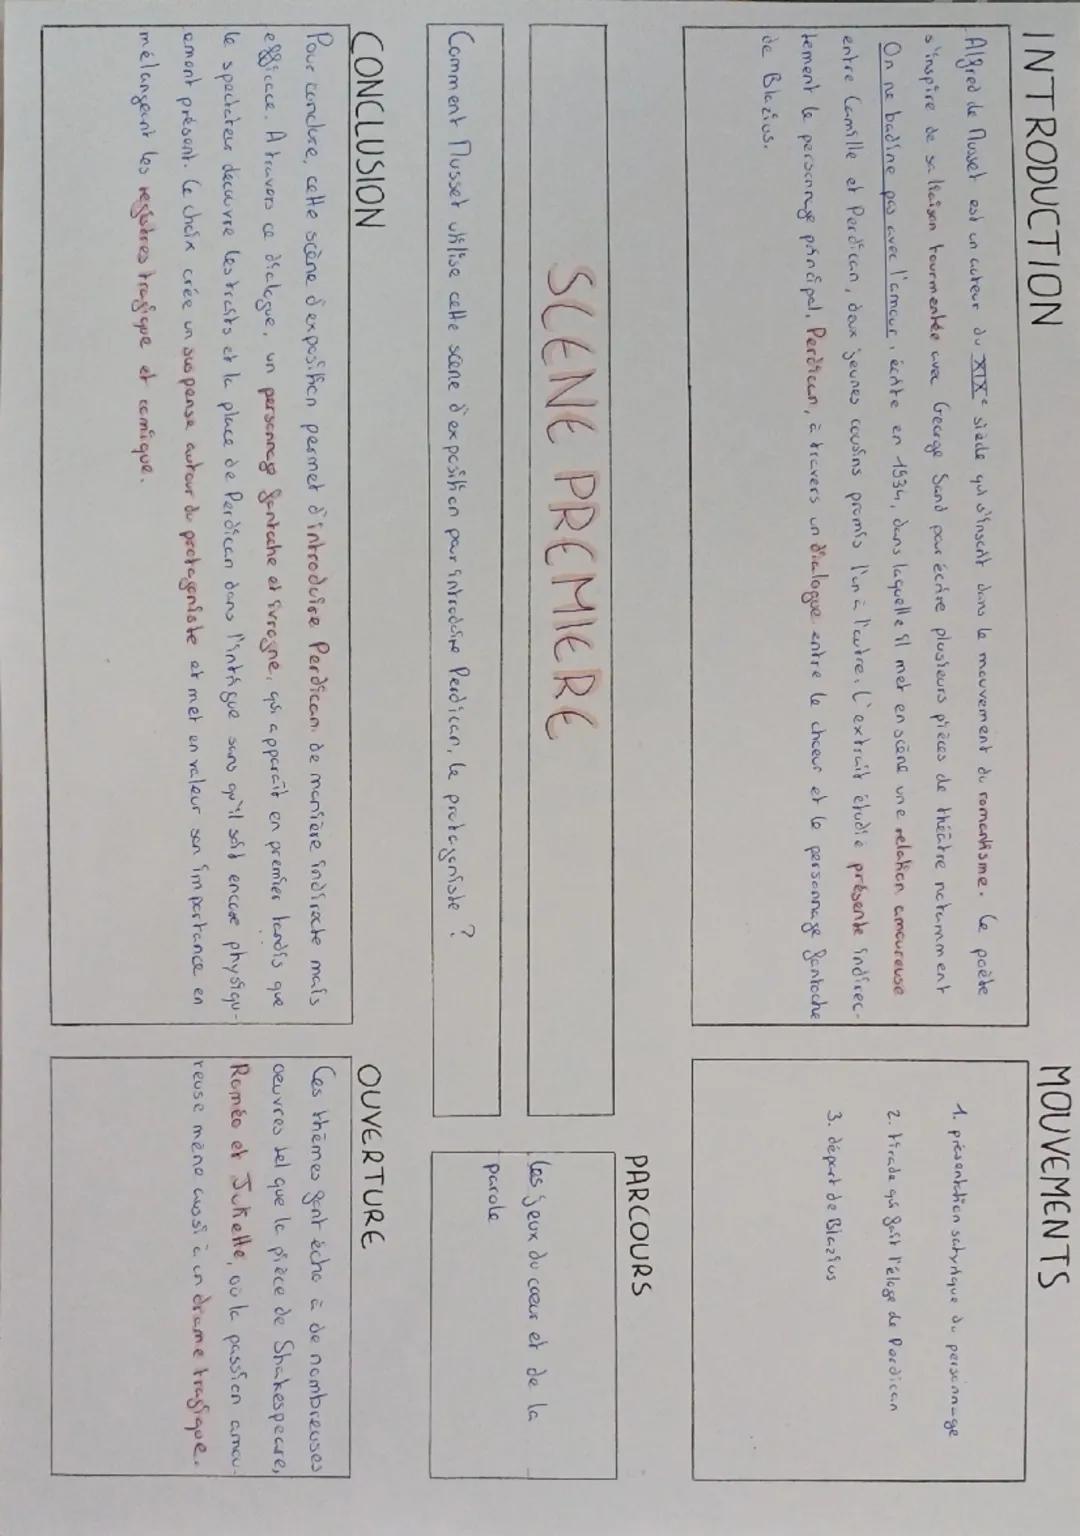 INTRODUCTION
Alfred de Musset est un auteur du XIXe siècle qui s'inscrit dans le mouvement du romantisme. Ce poète
s'inspire de sa liaison tourmentée avec George Sand pour écrire plusieurs pièces de théâtre notamment
On ne badine pas avec l'amour, écrite en 1834, dans laquelle il met en scène une relation amoureuse
entre Camille et Perdican, deux jeunes cousins promis l'un à l'autre. L'extrait étudié présente indirec-
tement le personnage principal, Perdican, à travers un dialogue entre le chœur et le personnage fantoche
de Blazius.
MOUVEMENTS
1. présentation satyrique du personnage
2. tirade qui fait l'éloge de Perdican
3. départ de Blazius
SCENE PREMIERE
PARCOURS
Les jeux du cœur et de la
parole
Comment Musset utilise cette scène d'exposition pour introduire Perdican, le protagoniste ?
CONCLUSION
Pour conclure, cette scène d'exposition permet d'introduire Perdican de manière indirecte mais
efficace. A travers ce dialogue, un personnage fantoche et ivrogne, qui apparait en premier tandis que
le spectateur découvre les traits et la place de Perdican dans l'intrigue sans qu'il soit encore physiqu-
ement présent. Ce choix crée un suspense autour du protagoniste et met en valeur son importance en
mélangeant les registres tragique et comique.
OUVERTURE
Ces thèmes font écho à de nombreuses
œuvres tel que la pièce de Shakespeare,
Roméo et Juliette, où la passion amou-
reuse mène aussi à un drame tragique.